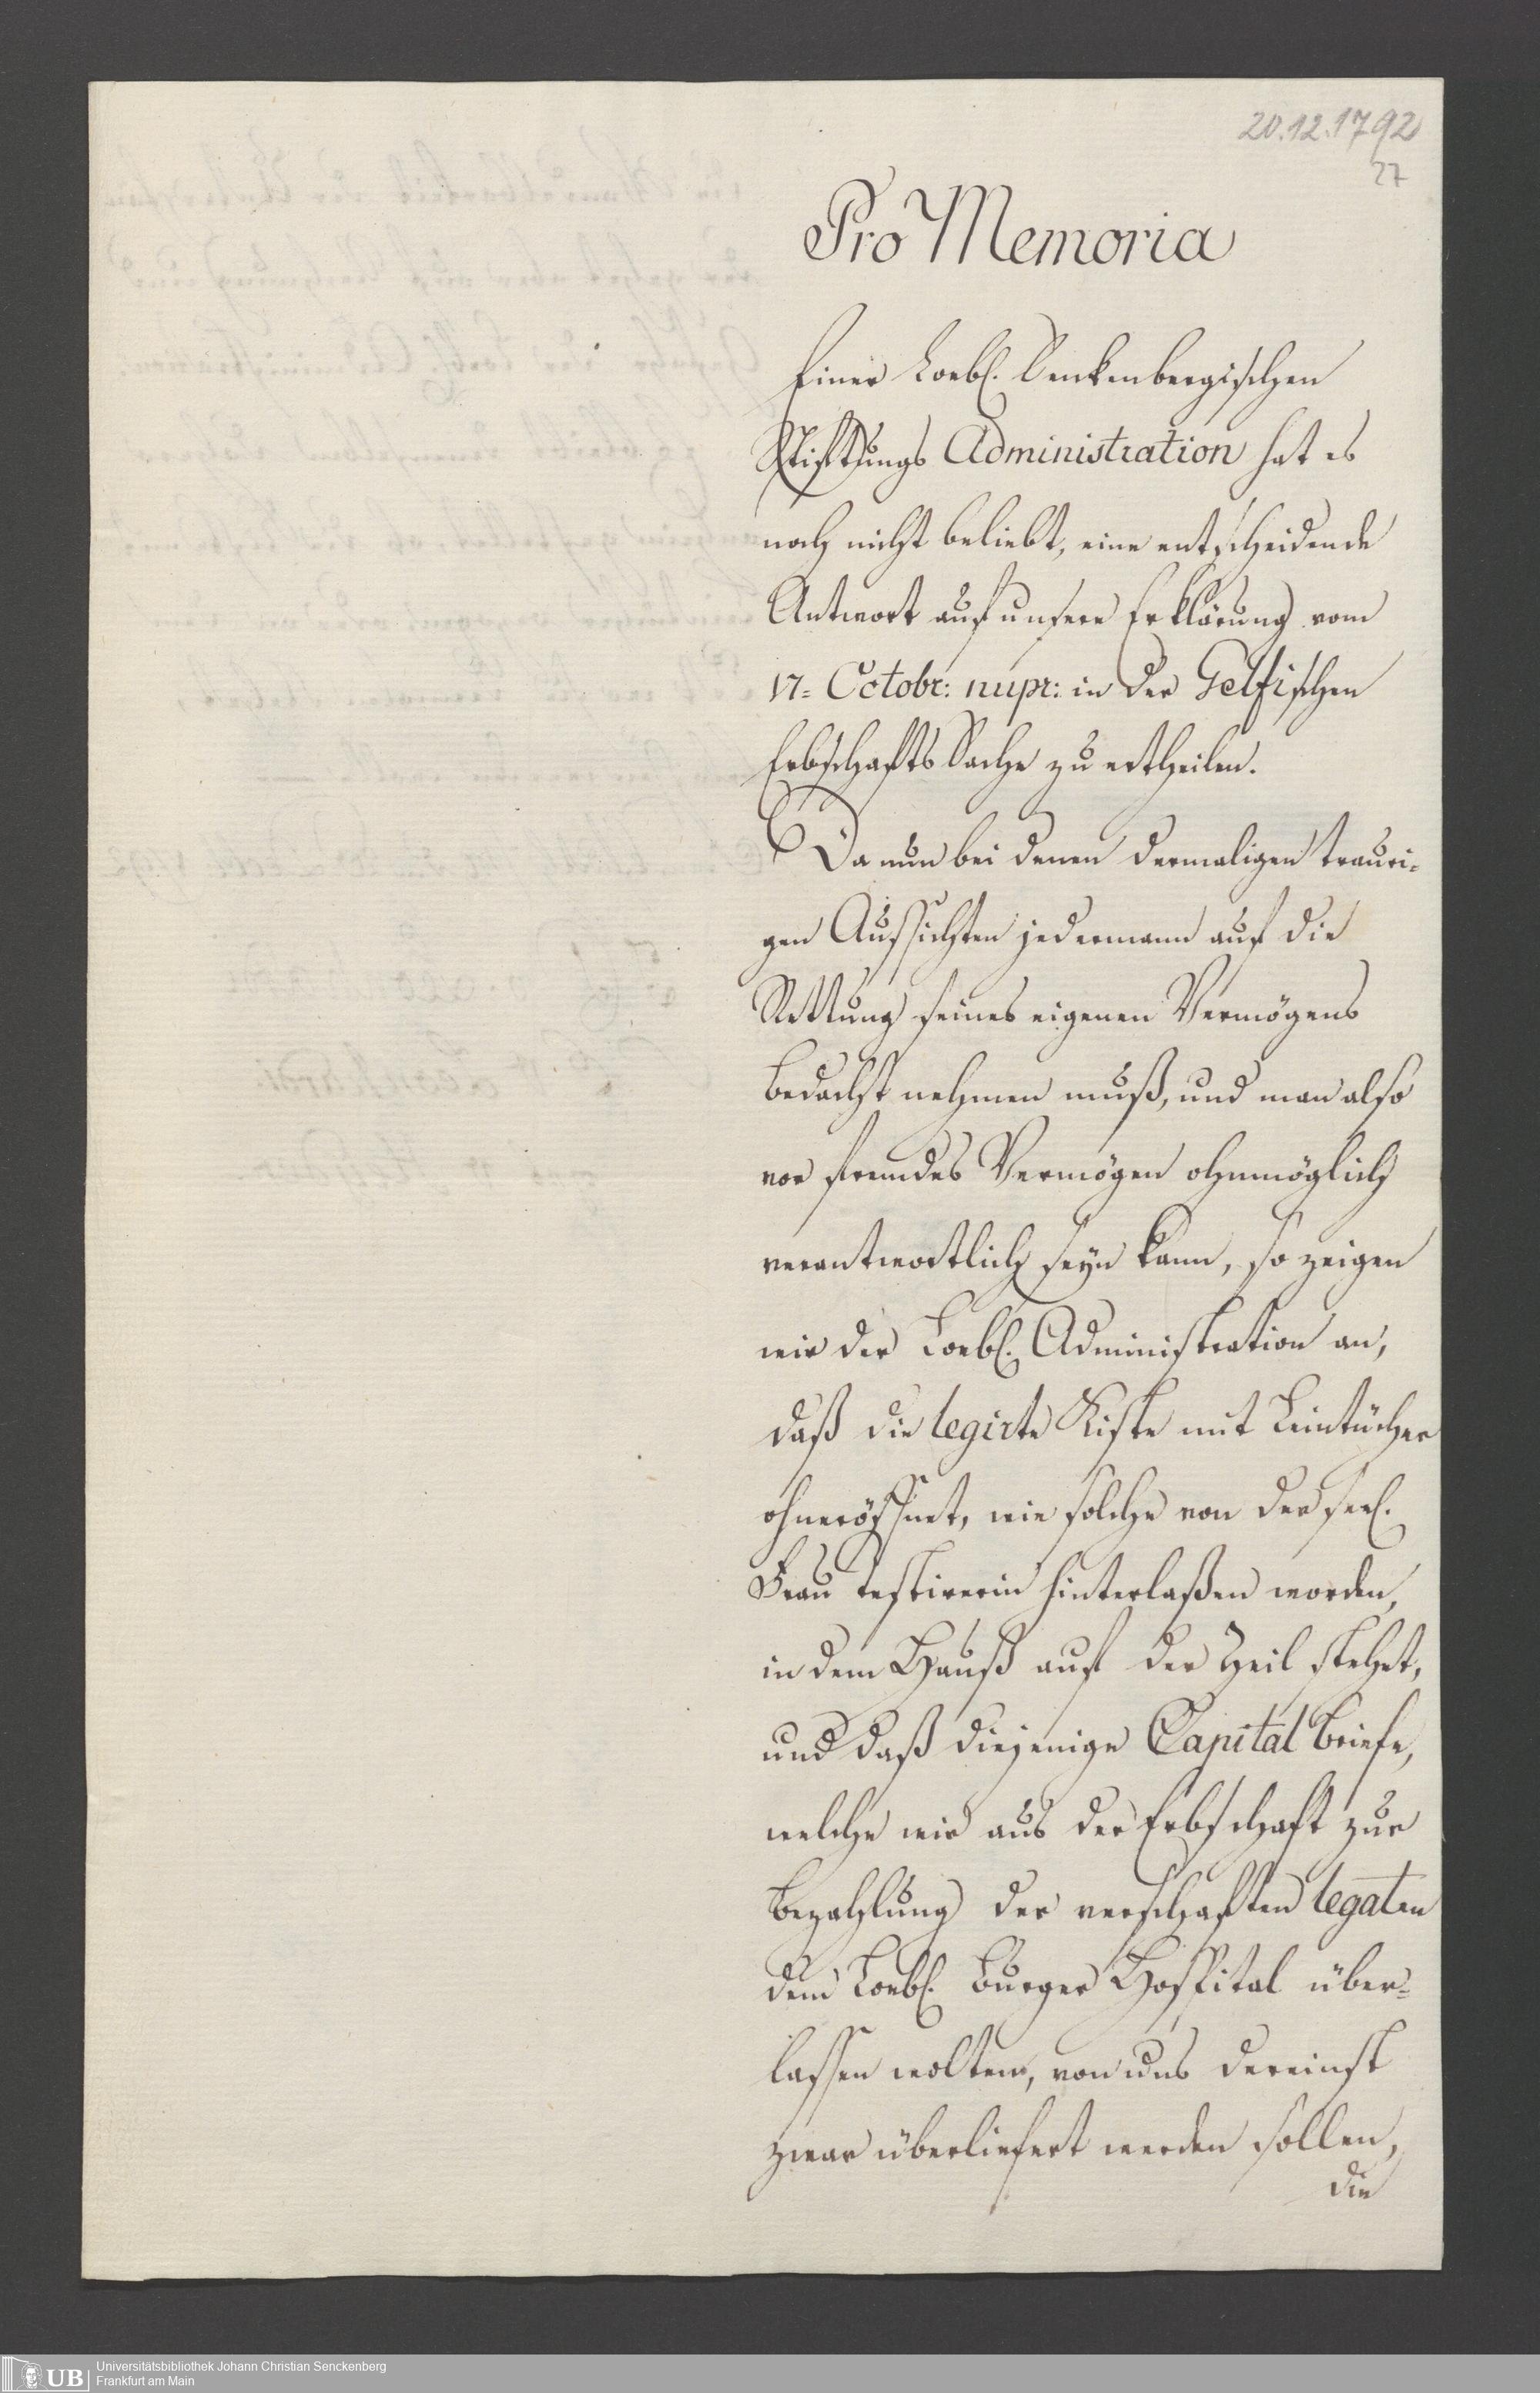 20.12.1792
27
Pro Memoria
Einer Loebl. Senkenbergischen
Stiftungs Administration hat es
noch nicht beliebt, eine entscheidende
Antwort auf unsere Erklärung vom
17= Octobr: nupr: in der Gelfischen
Erbschafts Sache zu ertheilen.
Da nun bei denen dermaligen trauri=
gen Aussichten jedermann auf die
Rettung seines eigenen Vermögens
bedacht nehmen muß, und man also
vor fremdes Vermögen ohnmöglich
verantwortlich seyn kann, so zeigen
wir der Loebl. Administration an,
daß die legirte Kiste mit Leintücher
ohneröffnet, wie solche von der seel.
Frau Testirerin hinterlaßen worden,
in dem Hauß auf der Zeil stehet,
und daß diejenige Capital Briefe,
welche wir aus der Erbschaft zur
Bezahlung der verschaften legaten
dem Loebl. Burger Hospital über=
lassen wolten, von uns dereinst
zwar überliefert werden sollen,
die
UB
Universitätsbibliothek Johann Christian Senckenberg
Frankfurt am Main